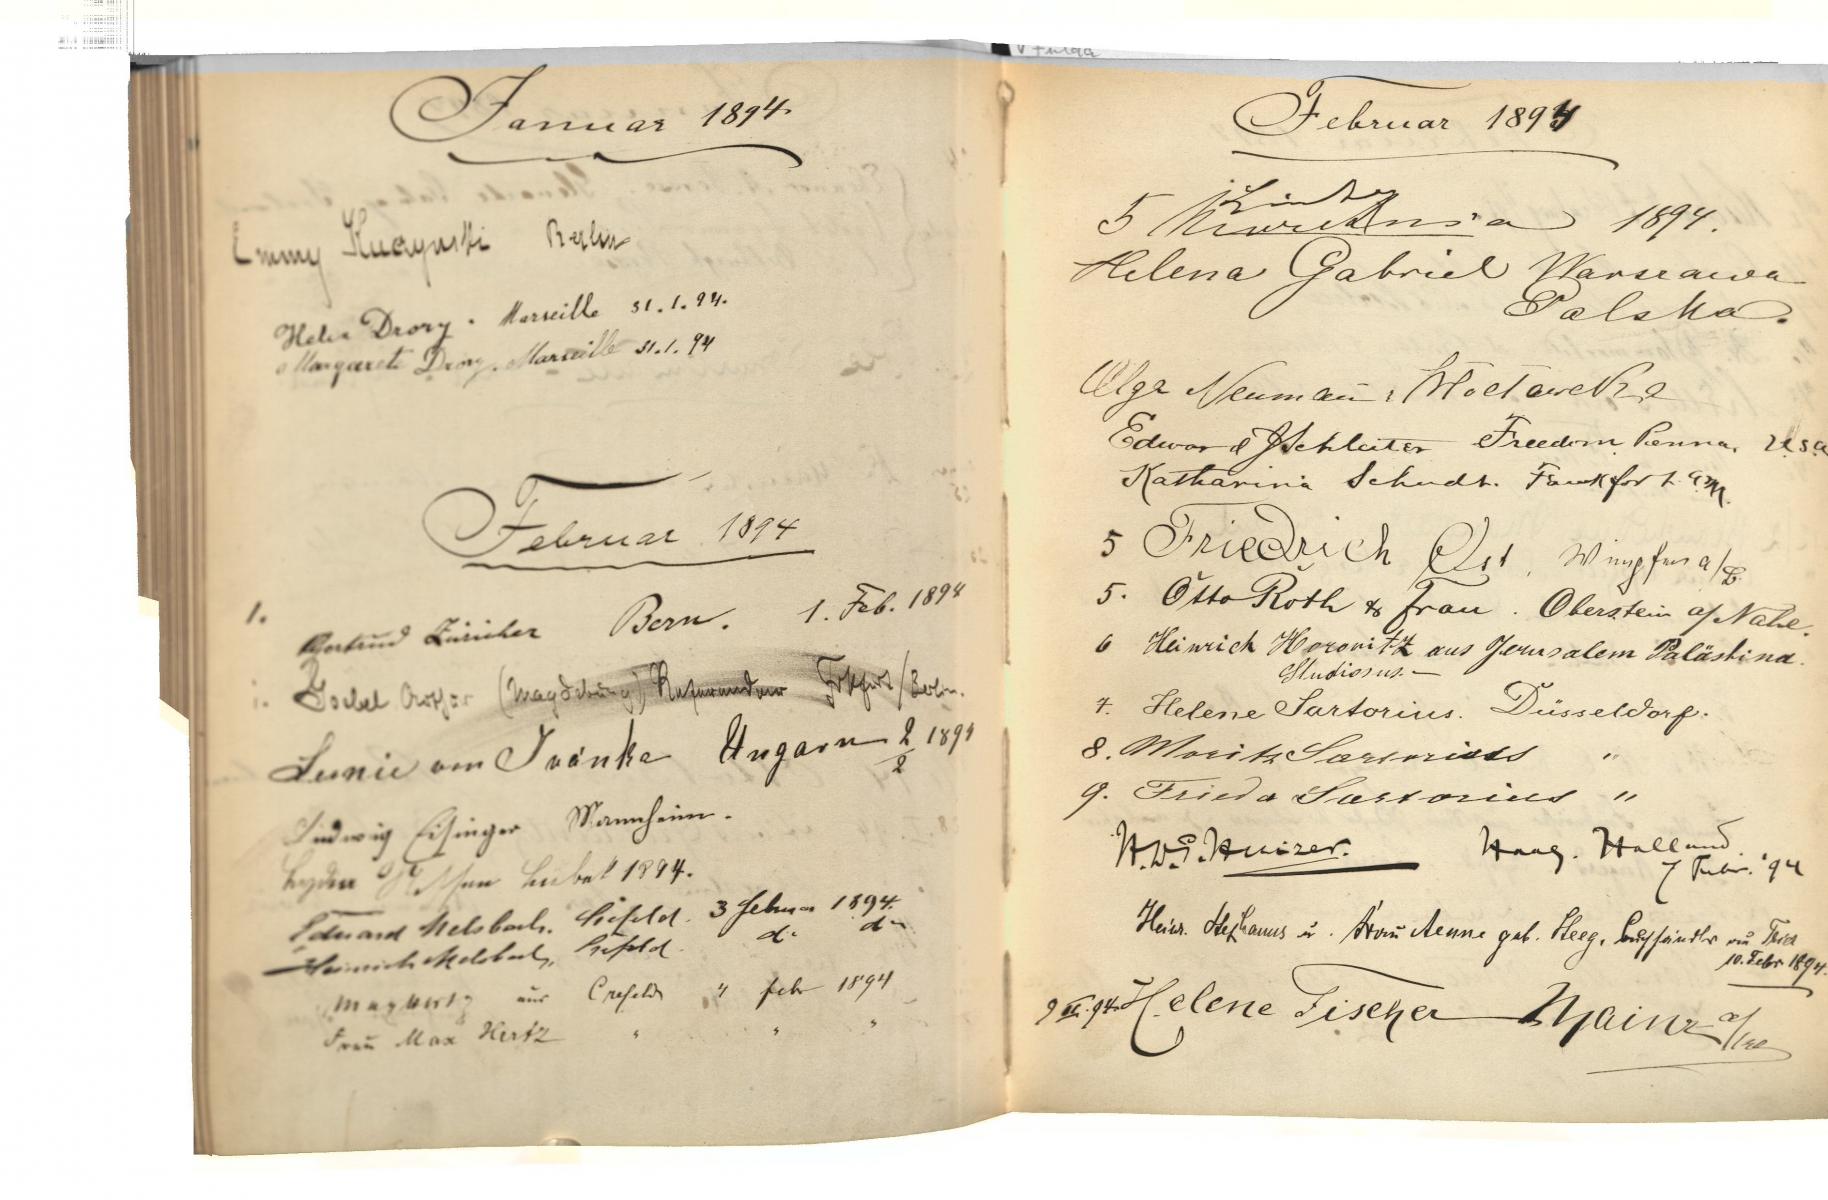 Januar 1894
Emmy Berlin
Helen Drory. Marseille 31.1.94.
Margarete Drory. Marseille 31.1.94
Februar 1894
1. Gertrud Züricher Bern. 1. Feb. 1894
Arthur (Magdeburg) Referendar /Berlin.
von Ivánka Ungarn 2/2 1894
Ludwig Eisinger Mannheim.
1894.
Eduard Melsbach. Crefeld. 3 Februar 1894.
Heinrich Melsbach, Crefeld. do do
Max Hertz aus Crefeld " Febr 1894
Frau Max Hertz " " "
Fulda
Februar 1894
5 1894.
Helena Gabriel Warszawa
Polska.
Olga Neumann,
Edward J Schleiter Freedom Penna. USA
Katharina Schudt. Frankfort a.M.
5 Friedrich Ost, Wimpfen a/
5. Otto Roth & Frau. Oberstein a/Nahe.
6 Heinrich Horovitz aus Jerusalem Palästina.
Studiosus.—
7. Helene Sartorius. Düsseldorf.
8. Moritz Sartorius "
9. Frieda Sartorius "
Huizer. Haag. Holland.
7 Febr. '94
Heinr. Stephanus u. Frau Aenne geb. Steeg,
10. Febr 1894.
9 II. 94. Helene Fischer Mainz a/